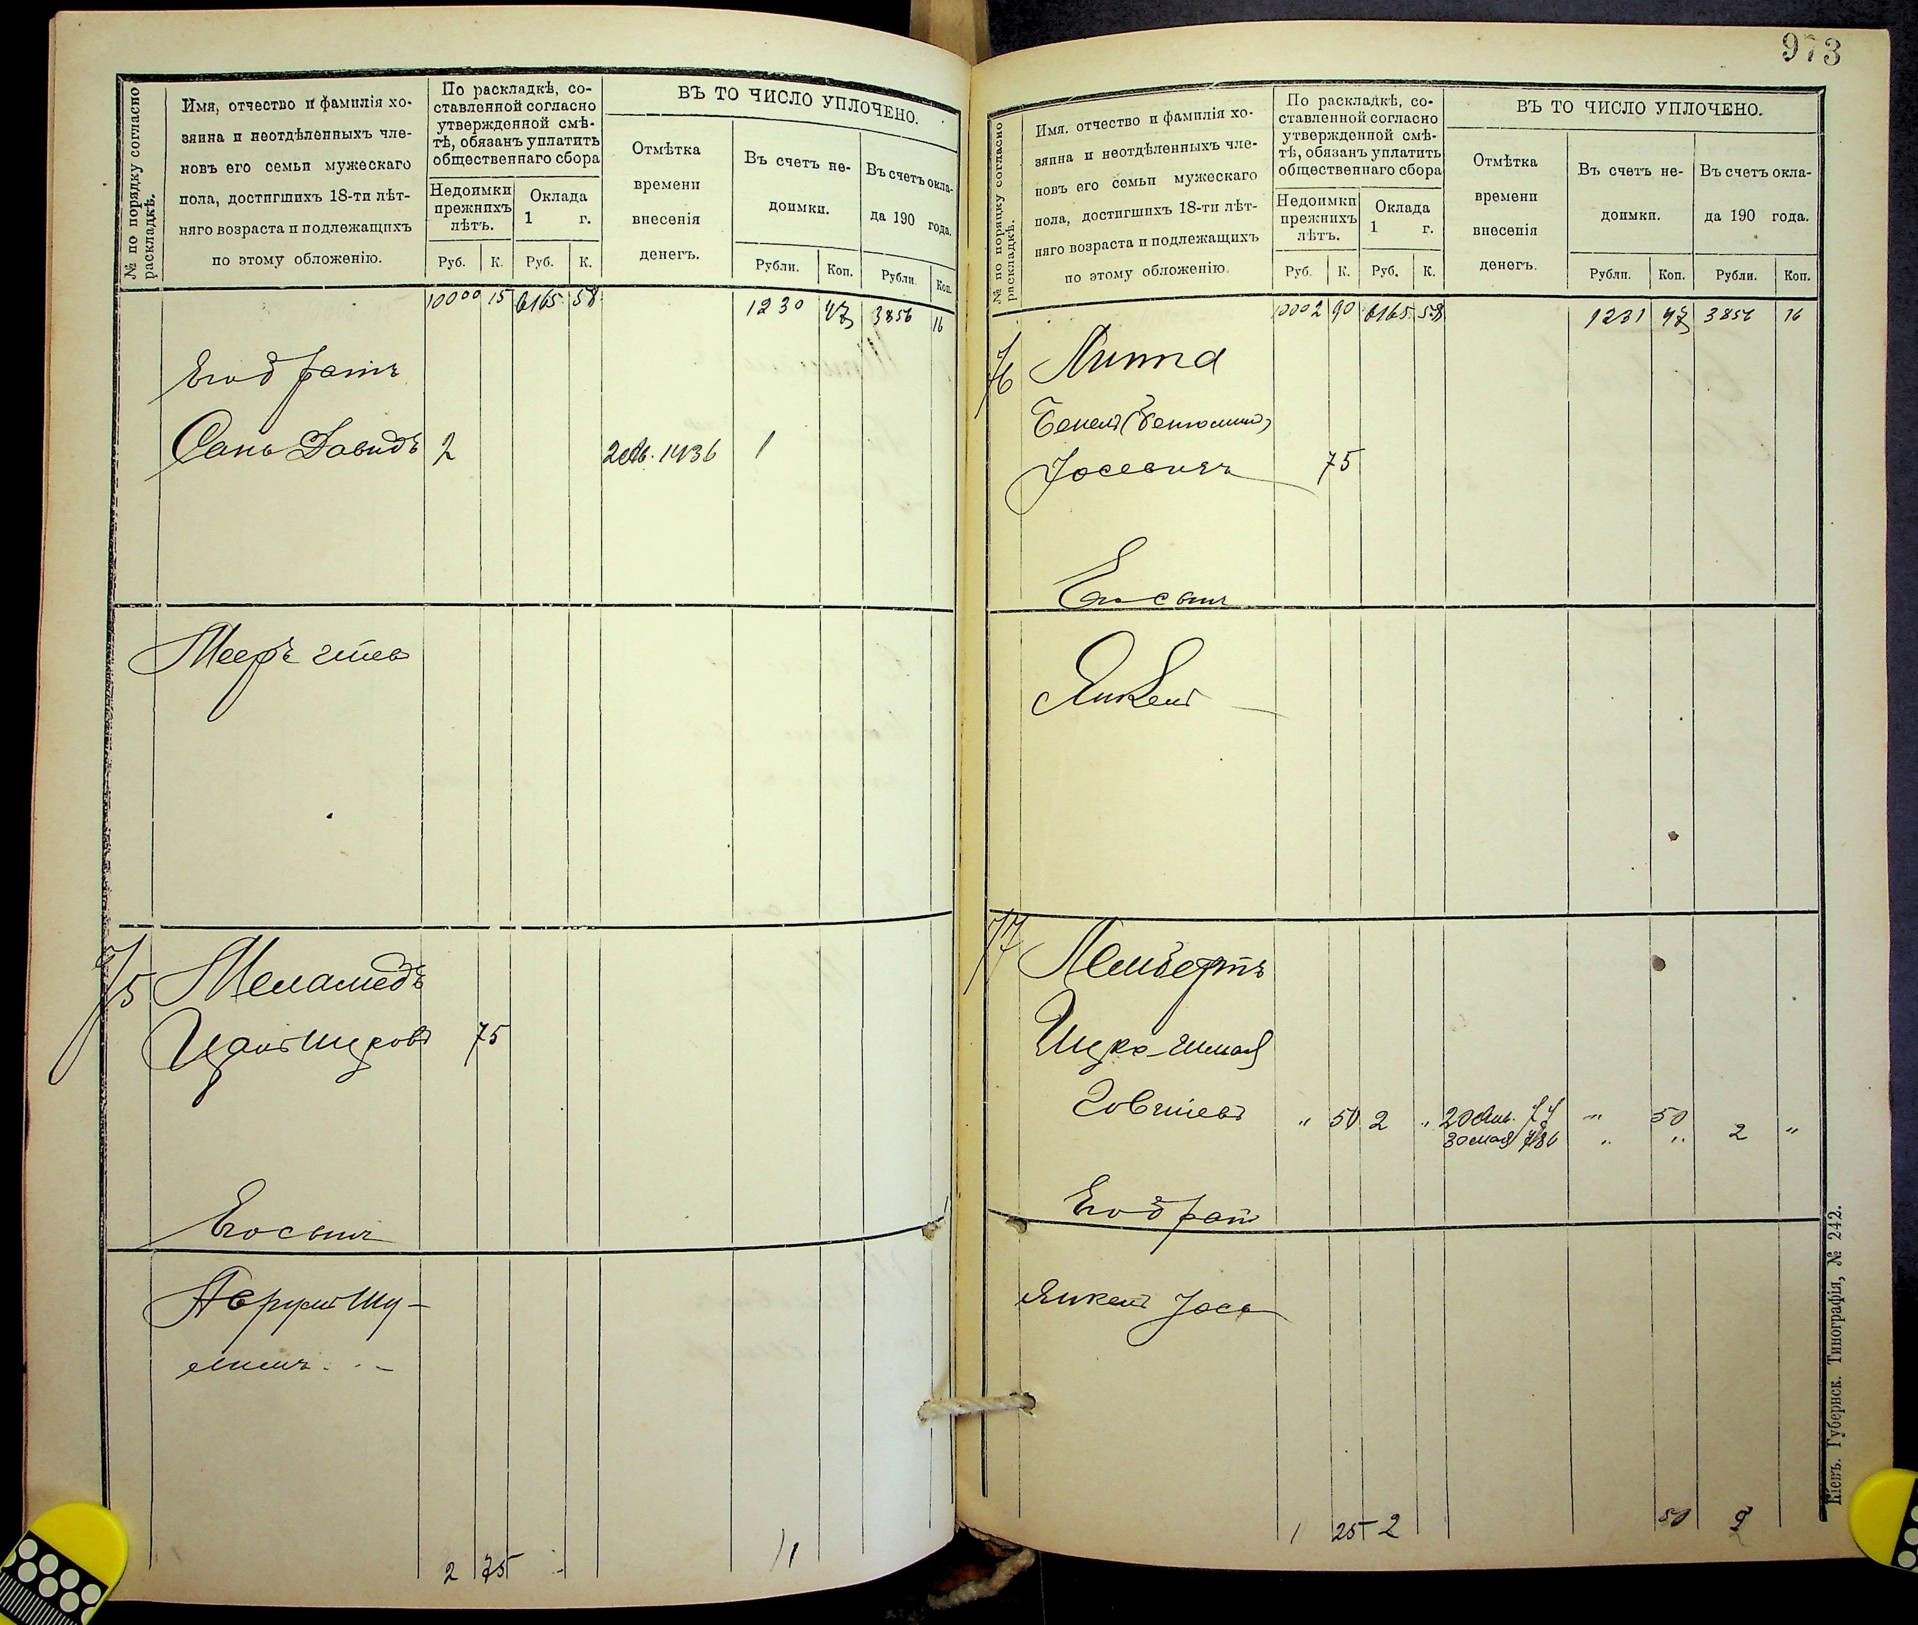 № по порядку согласно раскладкѣ.
Имя, отчество и фамилія хо-
зяина и неотдѣленныхъ чле-
новъ его семьи мужескаго
пола, достигшихъ 18-ти лѣт-
няго возраста и подлежащихъ
по этому обложенію.
По раскладкѣ, со-
ставленной согласно
утвержденной смѣ-
тѣ, обязанъ уплатить
общественнаго сбора
Недоимки
прежнихъ
лѣтъ.
Оклада
1 г.
Руб. К. Руб. К.
ВЪ ТО ЧИСЛО УПЛОЧЕНО.
Отмѣтка
времени
внесенія
денегъ.
Въ счетъ не-
доимки.
Въ счетъ окла-
да 190 года.
Рубли. Коп. Рубли Коп.
10000 15 6165 58 1230 47 3856 16
Его братъ
Сань Давидъ 2 1436 1
Мееръ
75 Меламедъ
75
Его сынъ
Аврумъ Шу-
лимъ
2 75 1
973
№ по порядку согласно раскладкѣ.
Имя. отчество и фамилія хо-
зяина и неотдѣленныхъ чле-
новъ его семьи мужескаго
пола, достигшихъ 18-ти лѣт-
няго возраста и подлежащихъ
по этому обложенію.
По раскладкѣ, со-
ставленной согласно
утвержденной смѣ-
тѣ, обязанъ уплатить
общественнаго сбора
Недоимки
прежнихъ
лѣтъ.
Оклада
1 г.
Руб. К. Руб. К.
ВЪ ТО ЧИСЛО УПЛОЧЕНО.
Отмѣтка
времени
внесенія
денегъ.
Въ счетъ не-
доимки.
Въ счетъ окла-
да 190 года.
Рубли. Коп. Рубли. Коп.
10002 90 6165 58 1231 47 3856 16
76 Липа
Бенель (Бенюминъ)
Іосевичъ 75
Его сынъ
Янкель
77 Лембертъ
Ицко-
" 50 2 " 20 Янв. 74 " 50
30 мая " " 2 "
Его братъ
Янкель Іось
1 25 2 50 2
Кіевъ. Губернск. Типографія, № 242.